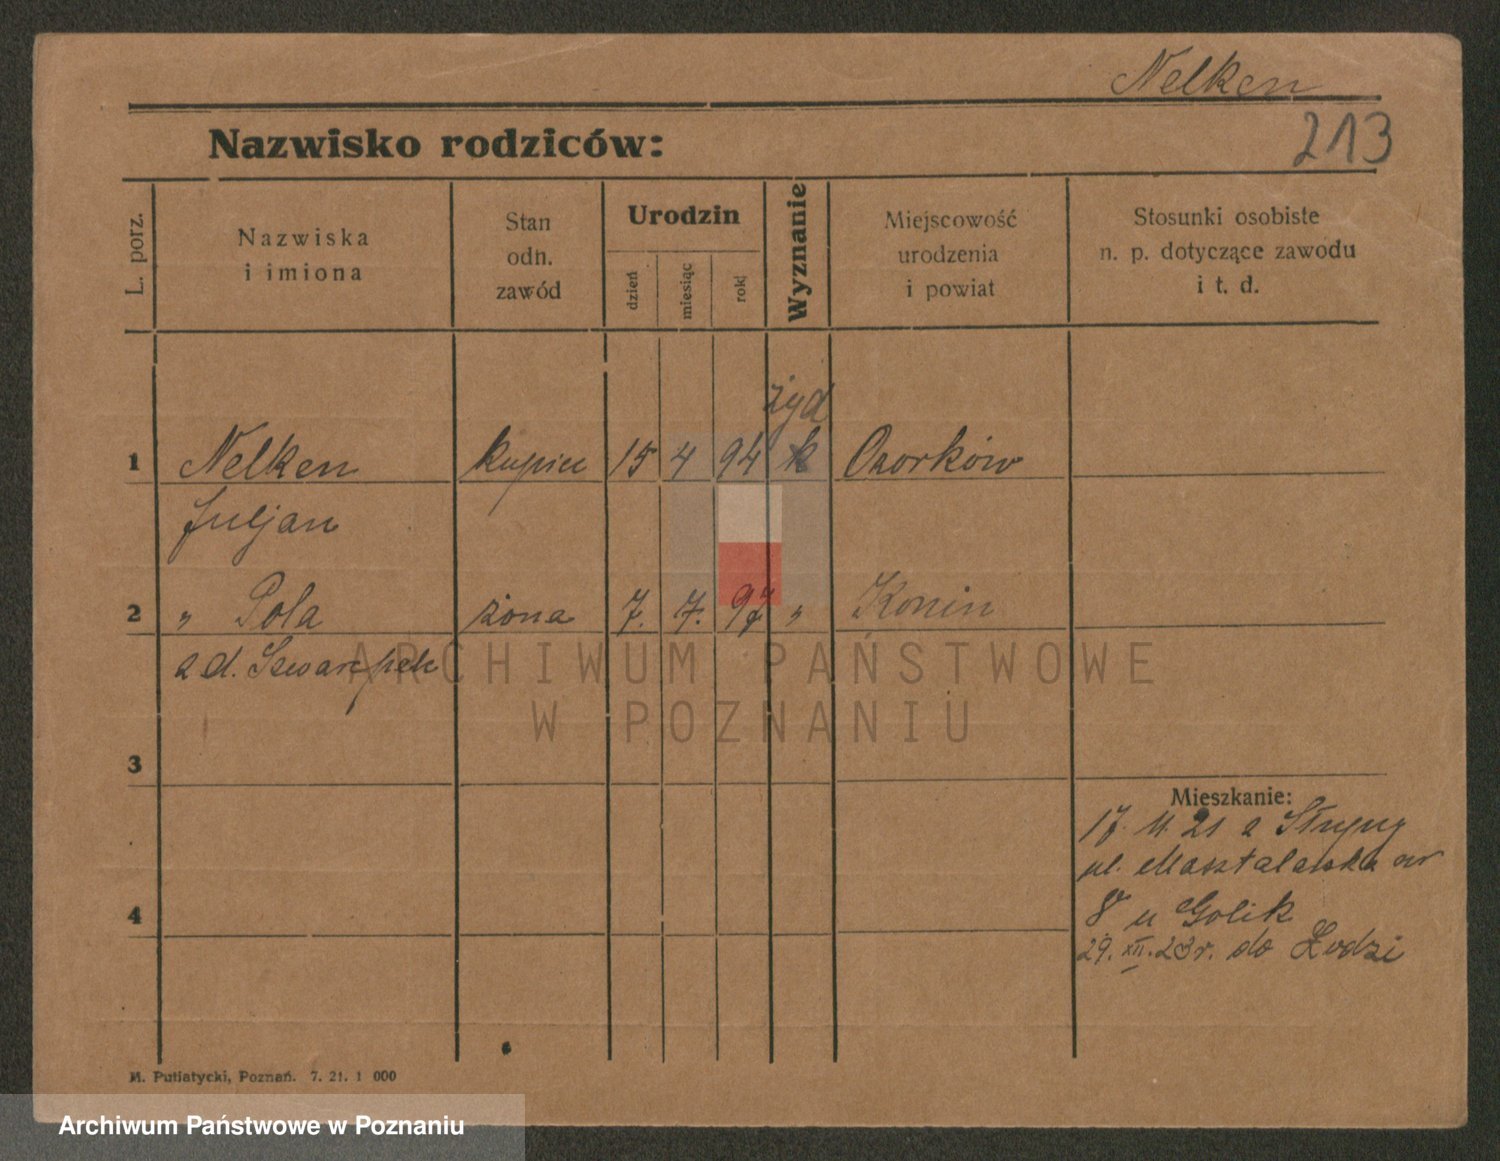 Nelken
213
Nazwisko rodziców:
L. porz.
Nazwiska
i imiona
Stan
odn.
zawód
Urodzin
dzień
miesiąc
rok
Wyznanie
Miejscowość
urodzenia
i powiat
Stosunki osobiste
n. p. dotyczące zawodu
i t. d.
żyd
1 Nelken kupiec 15 4 94 k Ozorków
Juljan
2 " Pola żona 7. 7. 97 " Konin
z d.
ARCHIWUM PAŃSTWOWE
W POZNANIU
3
Mieszkanie:
17. 11. 21 z
ul. Masztalarska nr
4
8 u Golik
29. XII. 23 r. do Łodzi
M. Putiatycki, Poznań. 7. 21. 1 000
Archiwum Państwowe w Poznaniu